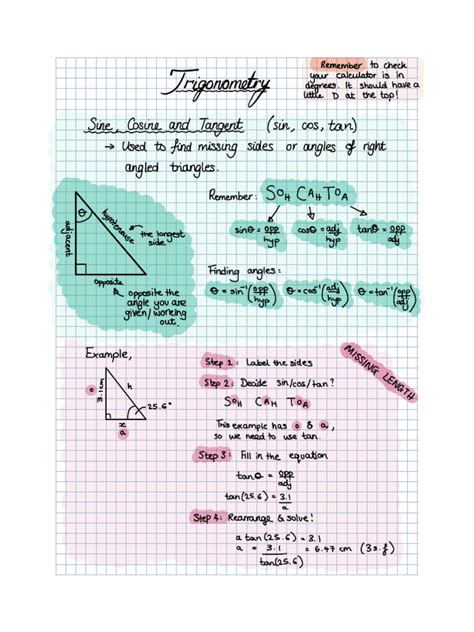 Trigonometry
Remember to check
your calculator is in
degrees. It should have a
little D at the top!
Sine, Cosine and Tangent (sin, cos, tan)
→ Used to find missing sides or angles of right
angled triangles.
θ
adjacent
hypotenuse
the longest
side.
opposite
opposite the
angle you are
given/working
out.
Remember: SOH CAHTOA
sinθ = opp/hyp cosθ = adj/hyp tanθ = opp/adj
Finding angles:
θ = sin⁻¹(opp/hyp) θ = cos⁻¹(adj/hyp) θ = tan⁻¹(opp/adj)
Example,
o 3.1cm h
25.6°
x
a
MISSING LENGTH
Step 1: Label the sides
Step 2: Decide sin/cos/tan?
SOH CAH TOA
This example has o & a,
so we need to use tan.
Step 3: Fill in the equation
tanθ = opp/adj
tan(25.6) = 3.1/a
Step 4: Rearrange & solve!
a tan(25.6) = 3.1
a = 3.1/tan(25.6) = 6.47 cm (3s.f)